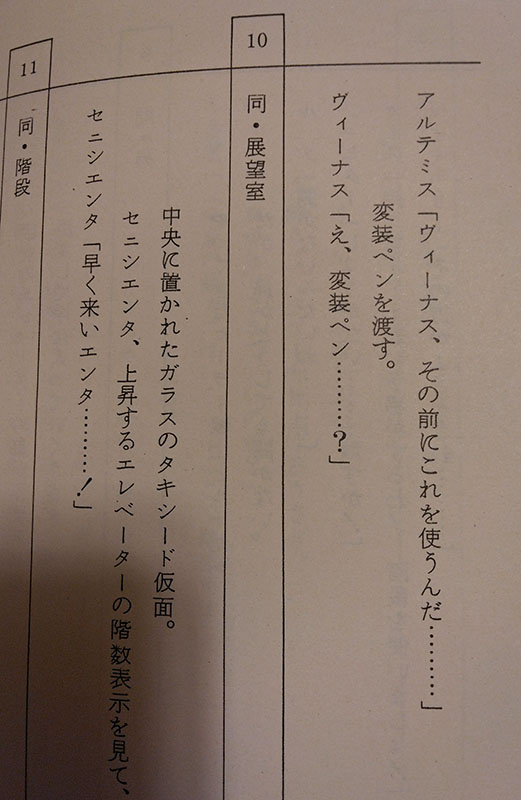 アルテミス「ヴィーナス、その前にこれを使うんだ…………」
変装ペンを渡す。
ヴィーナス「え、変装ペン…………？」
10
同・展望室
中央に置かれたガラスのタキシード仮面。
セニシエンタ、上昇するエレベーターの階数表示を見て、
セニシエンタ「早く来いエンタ…………！」
11
同・階段